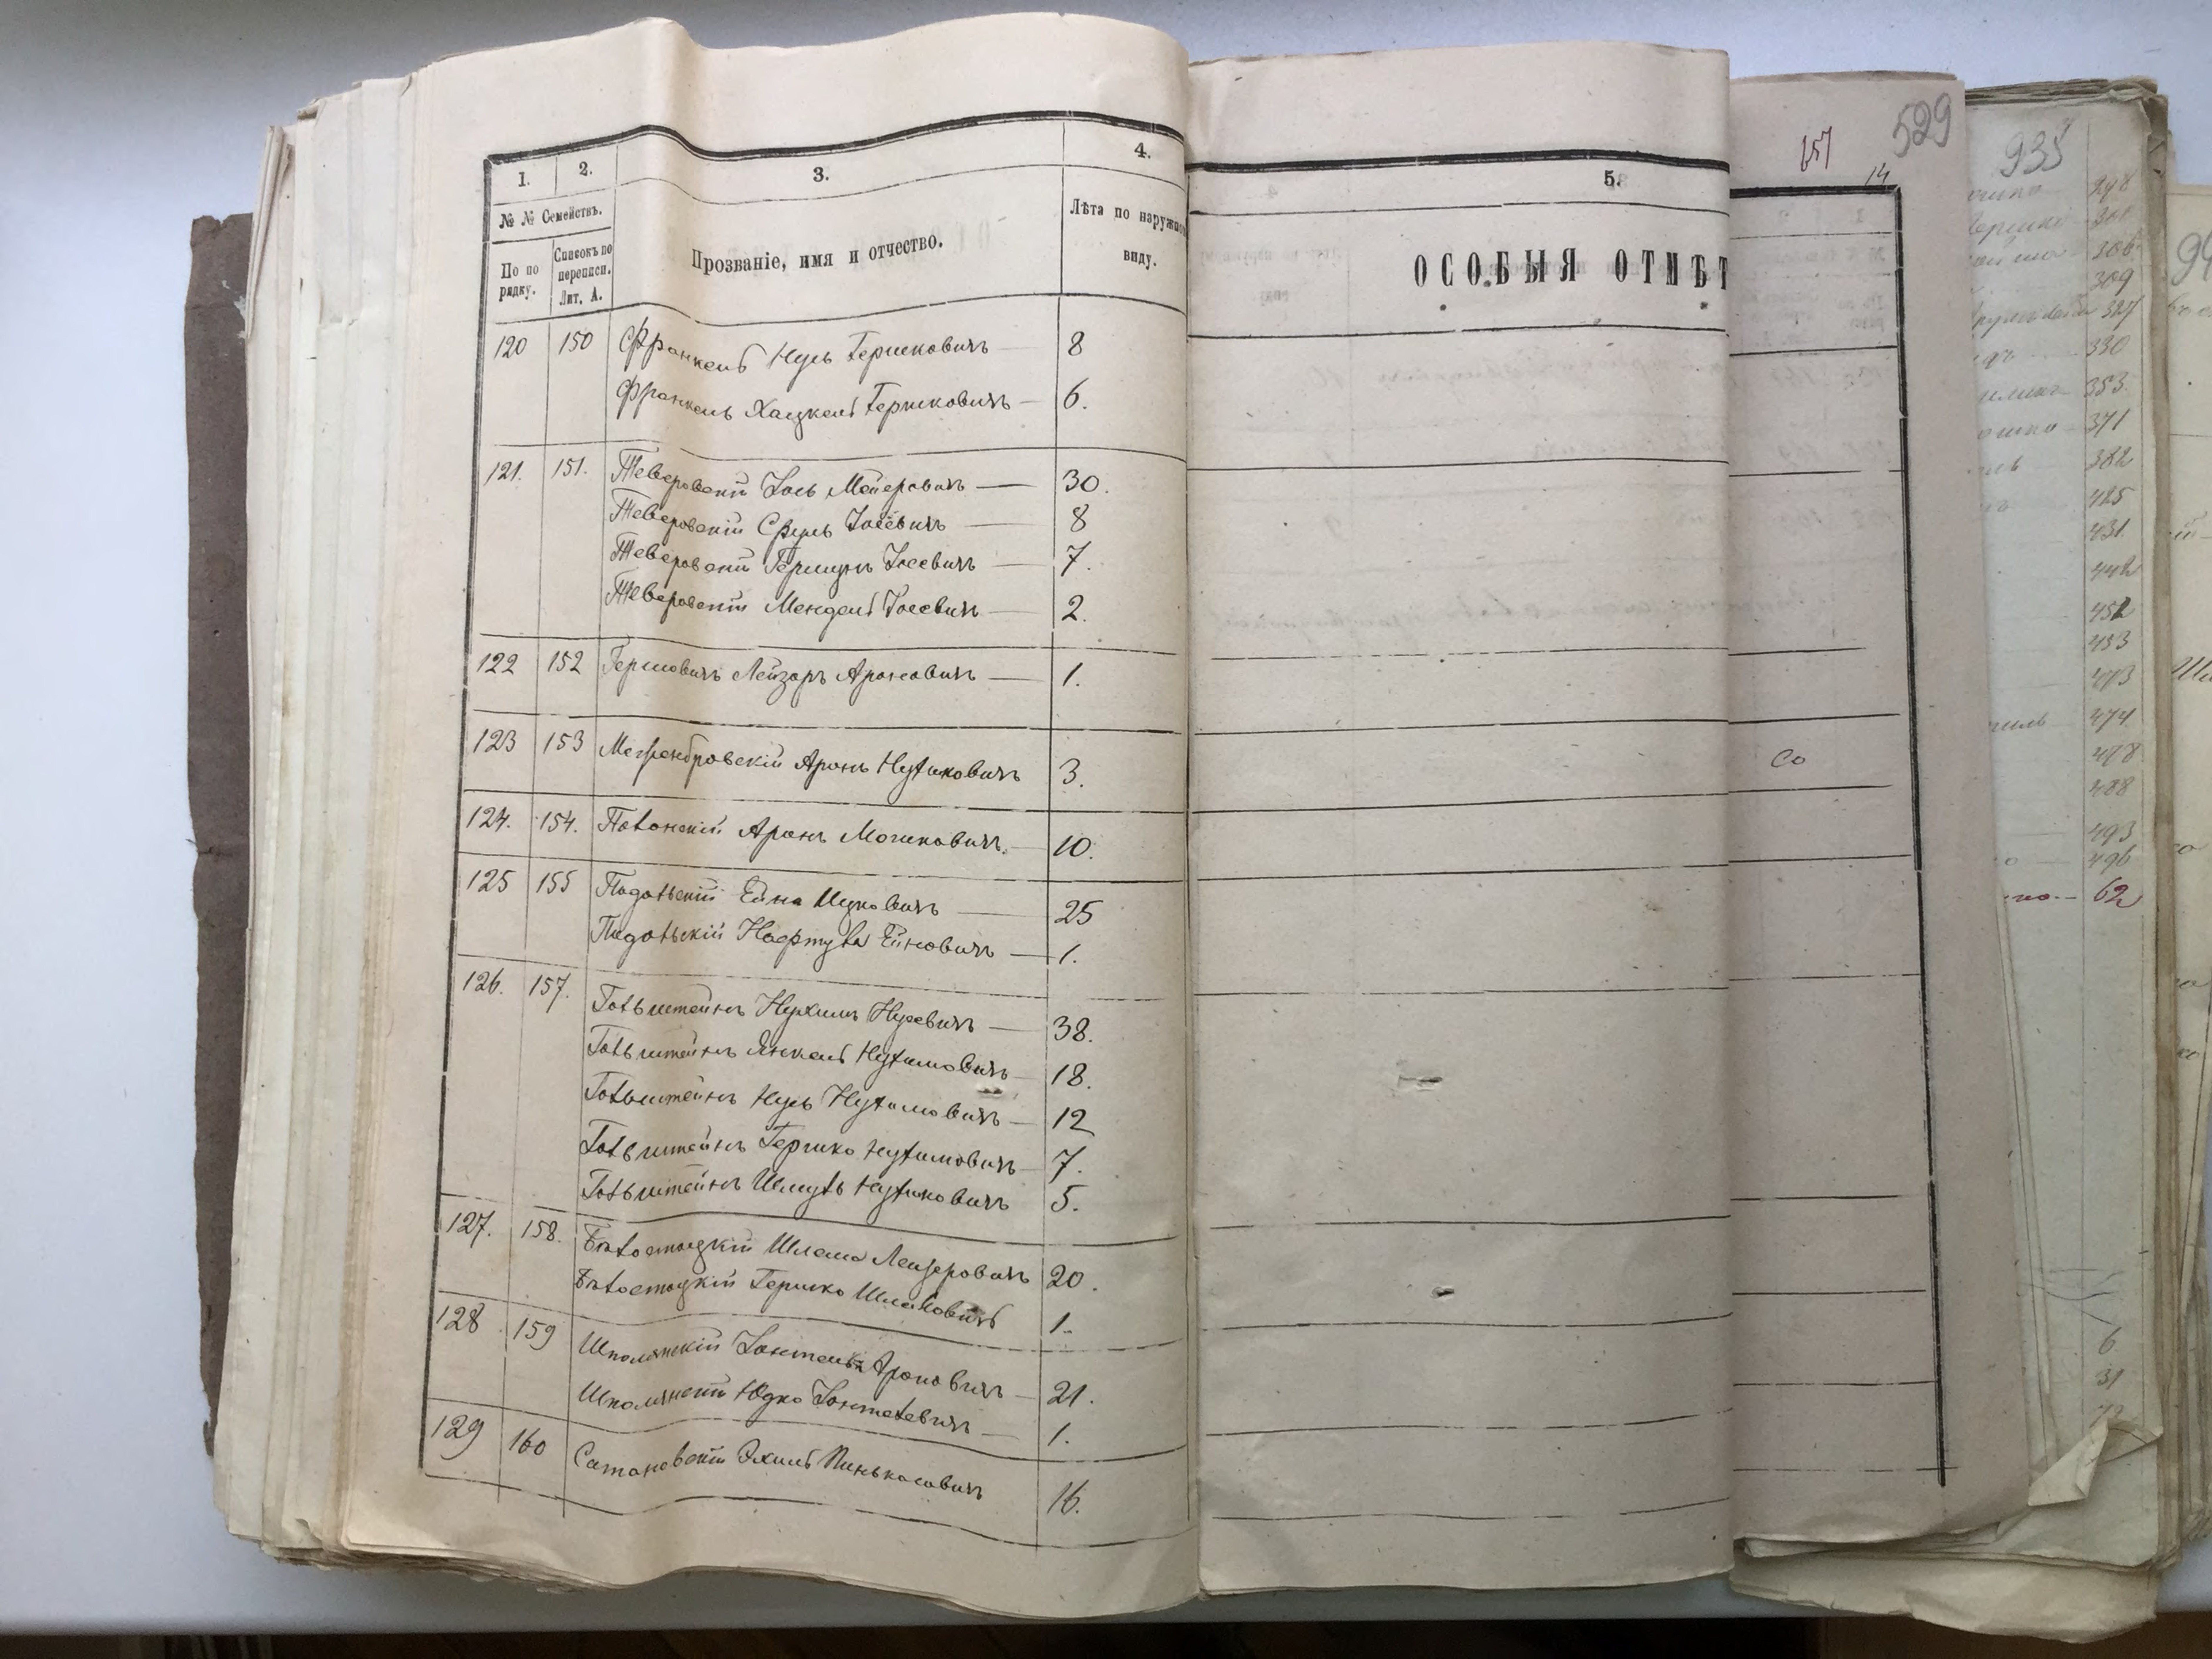 529
657
14
1. 2. 3. 4. 5.
№ № Семействъ.
По по рядку.
Списокъ по переписи. Лит. А.
Прозваніе, имя и отчество.
Лѣта по наружному виду.
ОСОБЫЯ ОТМѢТ
120 150 Франкель Нусь Гершковичъ — 8
Франкель Хацкель Гершковичъ — 6.
121. 151. Теверовскій Іось Мейеровичъ — 30.
Теверовскій Сруль Іосевичъ — 8
Теверовскій Іосевичъ — 7.
Теверовскій Мендель Іосевичъ — 2.
122 152 Гершовичъ Лейзоръ Ароновичъ — 1.
123 153 Аронъ Нухимовичъ 3.
Со
124. 154. Полонскій Аронъ Мошковичъ. — 10.
125 155 Подольскій Ейна Ицковичъ — 25
Подольскій Нафтула Ейновичъ — 1.
126. 157. Гольштейнъ Нухимъ Нусевичъ — 38.
Гольштейнъ Янкель Нухимовичъ — 18.
Гольштейнъ Нусь Нухимовичъ — 12
Гольштейнъ Гершко Нухимовичъ — 7.
Гольштейнъ Шмуль Нухимовичъ 5.
127. 158. Бѣлостоцкій Шлема Лейзеровичъ 20.
Бѣлостоцкій Гершко Шлемовичъ 1.
128 159 Шполянскій Ароновичъ — 21.
Шполянскій Юдко — 1.
129 160 Сатановскій Эхиль Пинькасовичъ 16.
935
298
301
306
309
327
330
353
371
382
425
431
442
452
453
473
474
478
488
493
496
62
6
31